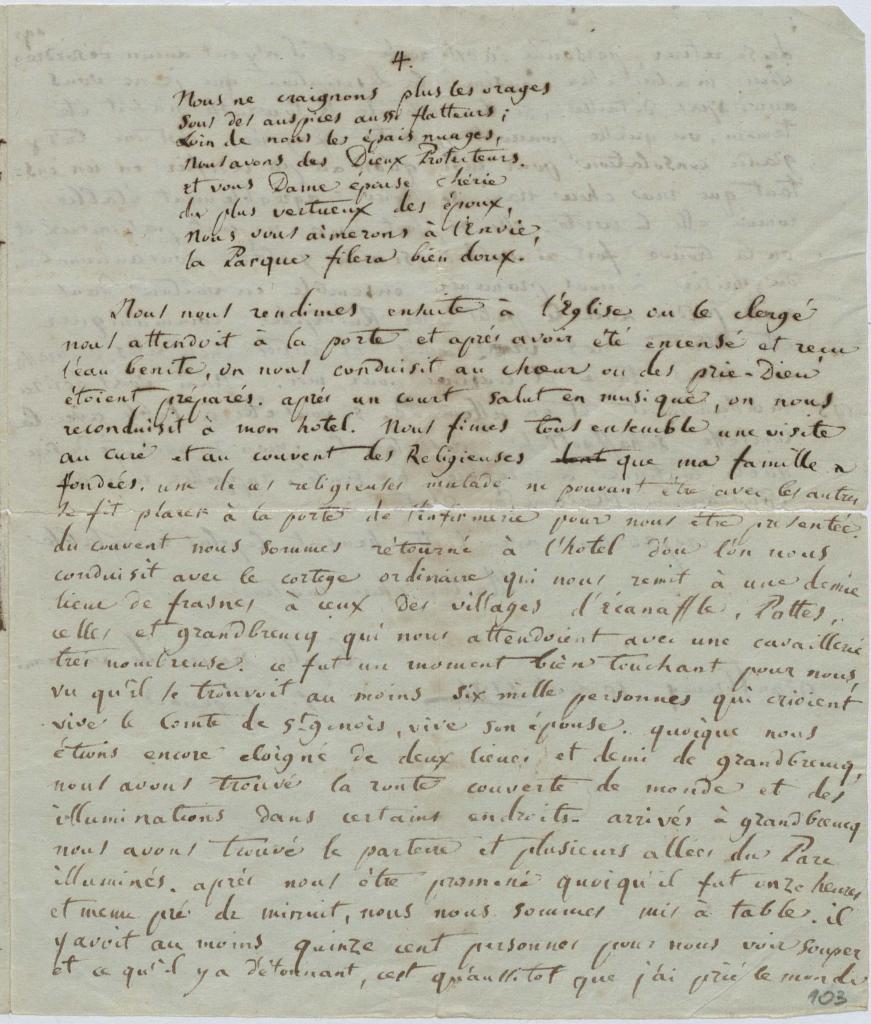 4.
Nous ne craignons plus les orages
sous des auspices aussi flatteurs;
Loin de nous les épais nuages,
nous avons des Dieux Protecteurs.
et vous Dame épouse chérie
du plus vertueux des époux,
nous vous aimerons à l'Envie,
la Parque filera bien doux.
Nous nous rendimes ensuite à l'Eglise ou le clergé
nous attendoit à la porte et aprés avoir été encensé et recu
l'eau benite, on nous conduisit au chœur ou des prie-Dieu
étoient préparés. aprés un court salut en musique, on nous
reconduisit à mon hotel. Nous fimes tous ensemble une visite
au curé et au couvent des Religieuses que ma famille a
fondées. une de ces religieuses malade ne pouvant être avec les autres
se fit placer à la porte de l'infirmerie pour nous être presentée.
du couvent nous sommes rétourné à l'hotel d'ou l'on nous
conduisit avec le cortege ordinaire qui nous remit à une demie
lieue de frasnes à ceux des villages d'Ecanaffle, Pottes,
celles et grandbreucq qui nous attendoient avec une cavaillerie
trés nombreuse. ce fut un moment bien touchant pour nous,
vu qu'il se trouvoit au moins six mille personnes qui crioient
vive le Comte de St. genois, vive son épouse. quoique nous
étions encore eloigné de deux lieues et demi de grandbreucq,
nous avons trouvé la route couverte de monde et des
illuminations dans certains endroits. arrivés à grandbreucq
nous avons trouvé le parterre et plusieurs allées du Parc
illuminés. aprés nous être promené quoiqu'il fut onze heures
et meme pré de minuit, nous nous sommes mis à table. il
y avoit au moins quinze cent personnes pour nous voir souper
et ce qu'il y a d'étonnant, c'est qu'aussitot que j'ai prié le monde
103